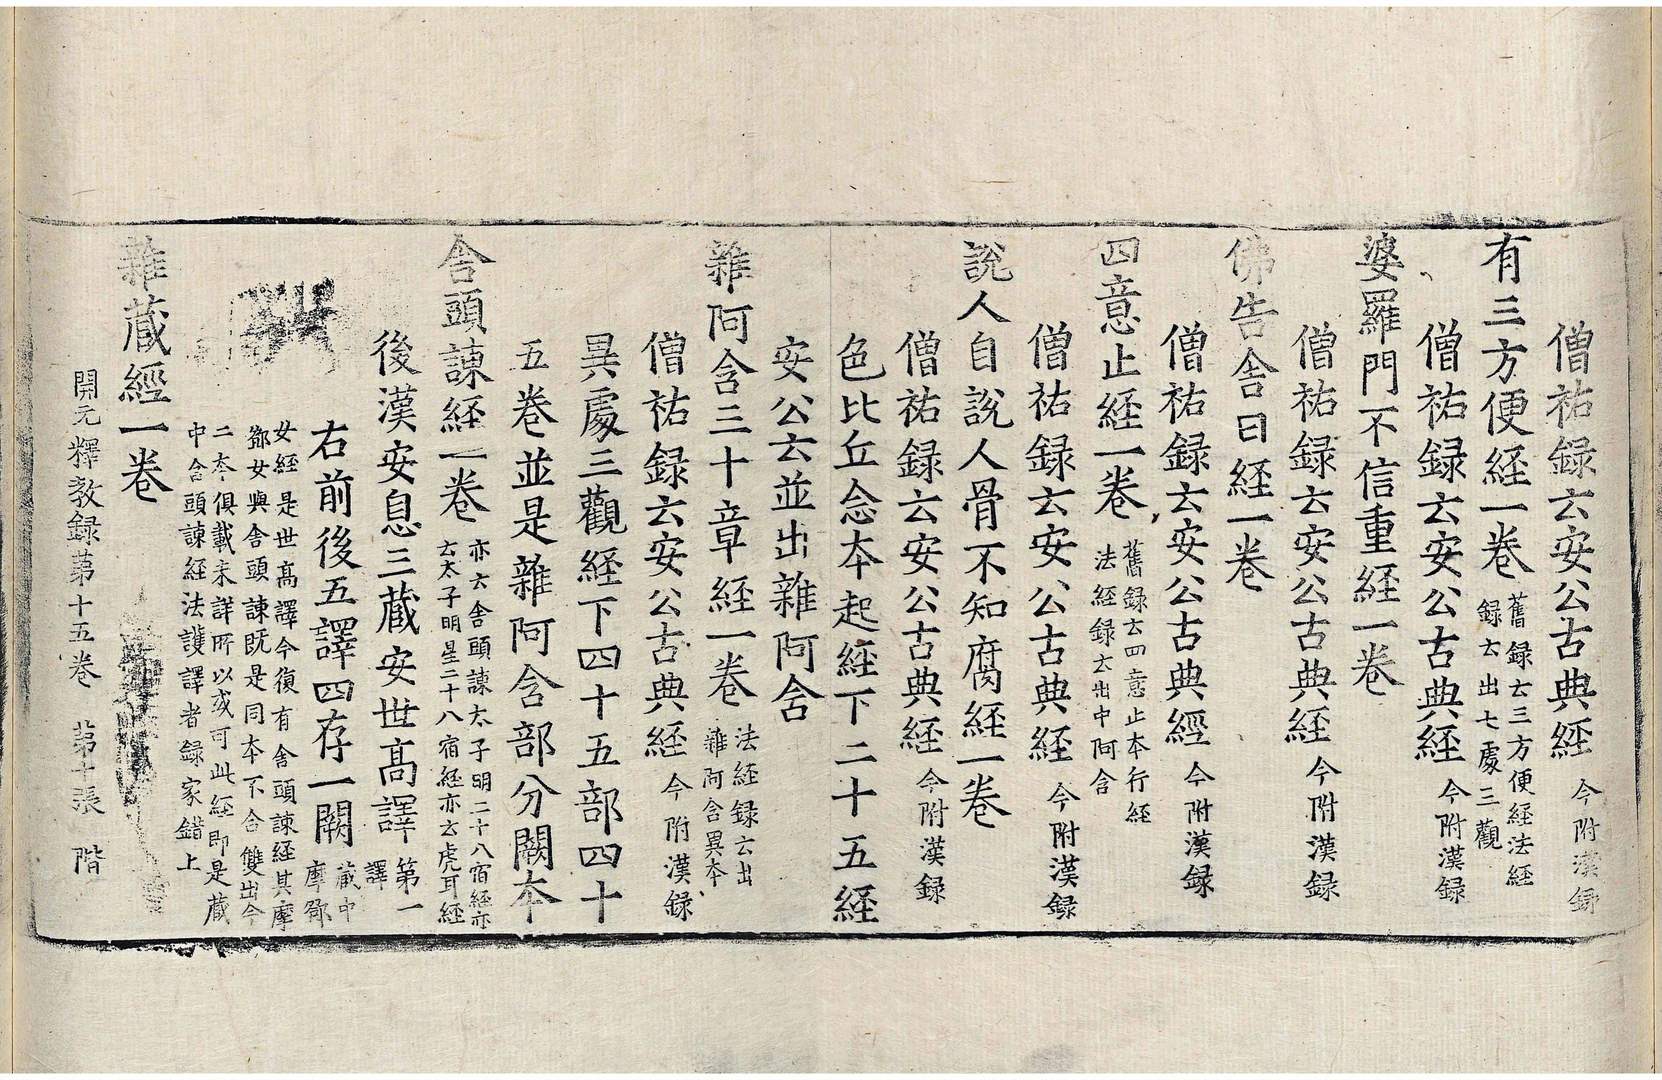 僧祐録云安公古典経今附漢録
有三方便経一巻舊録云三方便経法経録云出七處三觀
僧祐録云安公古典経今附漢録
婆羅門不信重経一巻
僧祐録云安公古典経今附漢録
佛告舎曰経一巻
僧祐録云安公古典經今附漢録
四意止経一巻舊録云四意止本行経法経録云出中阿含
僧祐録云安公古典経今附漢録
説人自説人骨不知腐経一巻
僧祐録云安公古典経今附漢録
色比丘念本起経下二十五経
安公云並出雜阿含
雜阿含三十章経一巻法経録云出雜阿含異本
僧祐録云安公古典経今附漢録
異處三觀経下四十五部四十
五巻並是雜阿含部分闕本
舎頭諫経一巻亦云舎頭諫太子明二十八宿経亦云太子明星二十八宿経亦云虎耳経
後漢安息三蔵安世高譯第一譯
右前後五譯四存一闕蔵中摩鄧
女経是世高譯今復有舎頭諫経其摩鄧女與舎頭諫既是同本不合雙出今
二本俱載未詳所以或可此経即是蔵中舎頭諫経法護譯者録家錯上
雜蔵經一巻
開元釋教録第十五巻 第十張 階